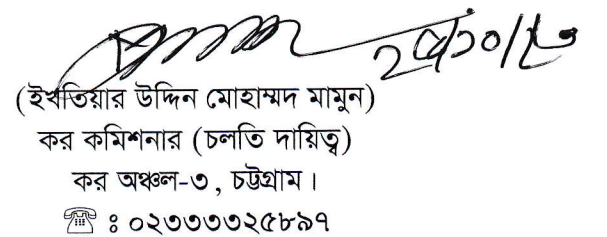 (ইখতিয়ার উদ্দিন মোহাম্মদ মামুন)
কর কমিশনার (চলতি দায়িত্ব)
কর অঞ্চল-৩, চট্টগ্রাম।
☎ ঃ ০২৩৩৩৩২৫৮৯৭